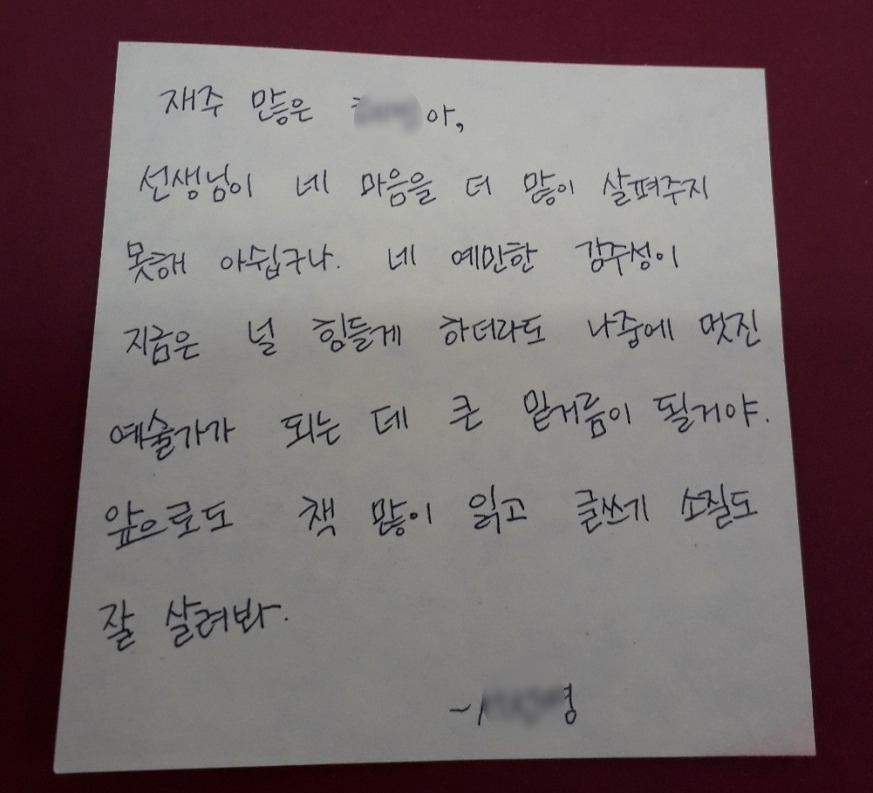 재주 많은 아,
선생님이 네 마음을 더 많이 살펴주지
못해 아쉽구나. 네 예민한 감수성이
지금은 널 힘들게 하더라도 나중에 멋진
예술가가 되는 데 큰 밑거름이 될거야.
앞으로도 책 많이 읽고 글쓰기 소질도
잘 살려봐.
- 영